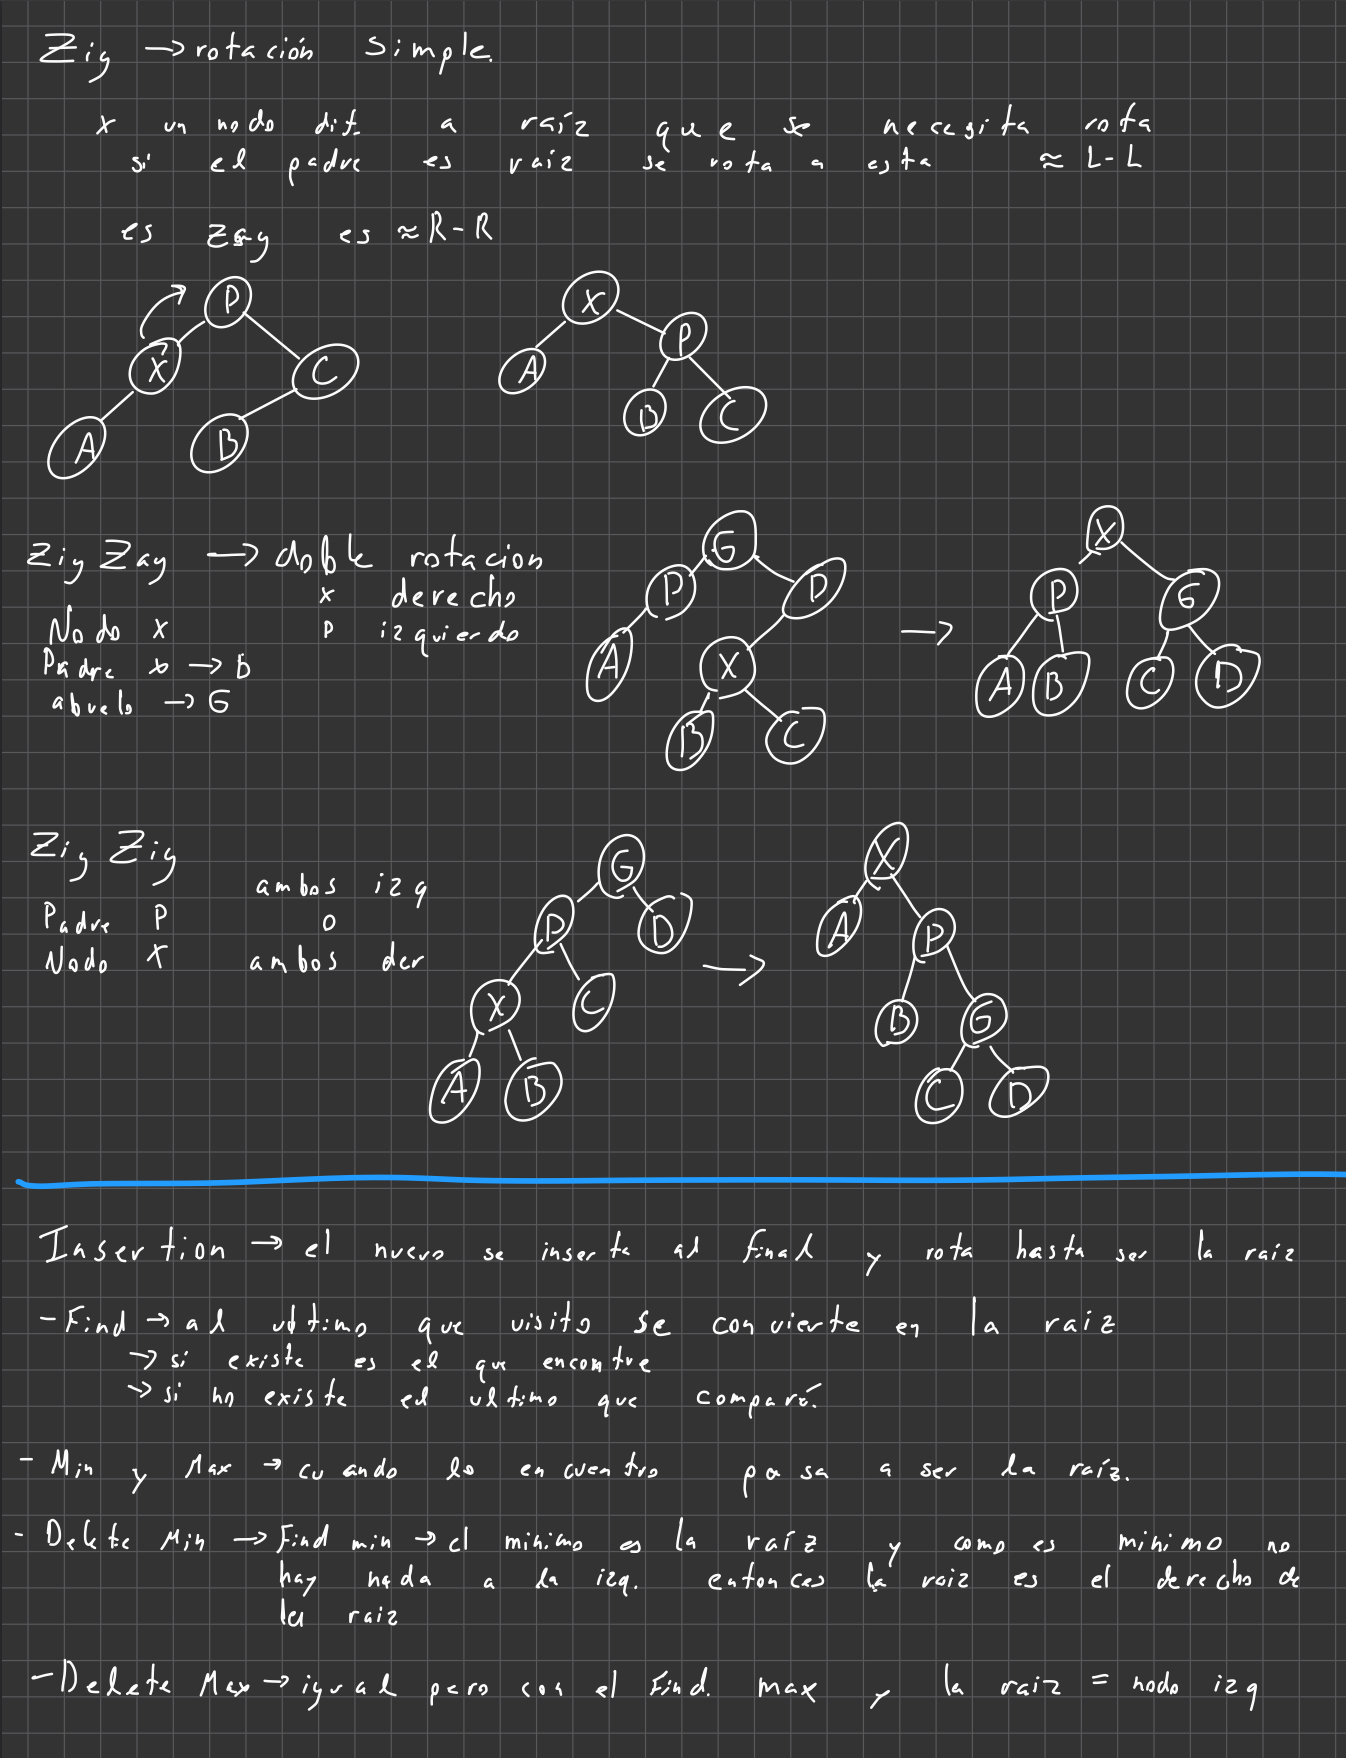 Zig → rotación simple.
x un nodo dif. a raíz que se necesita rota
si el padre es raíz se rota a esta ≈ L-L
es Zag es ≈ R-R
P
X
C
A
B
X
P
A
B
C
Zig Zag → doble rotacion
x derecho
Nodo x P izquierdo
Padre x →
abuelo → G
G
P
P
A
X
B
C
X
P
G
A
B
C
D
Zig Zig
ambos izq
Padre P o
Nodo X ambos der
G
P
D
X
C
A
B
X
A
P
B
G
C
D
Insertion → el nuevo se inserta al final y rota hasta ser la raiz
- Find → al ultimo que visito se convierte en la raiz
→ si existe es el que encontre
→ si no existe el ultimo que comparé.
- Min y Max → cuando lo encuentro pasa a ser la raíz.
- Delete Min → Find min → el minimo es la raíz y como es minimo no
hay nada a la izq. entonces la raiz es el derecho de
la raiz
- Delete Max → igual pero con el Find. max y la raiz = nodo izq